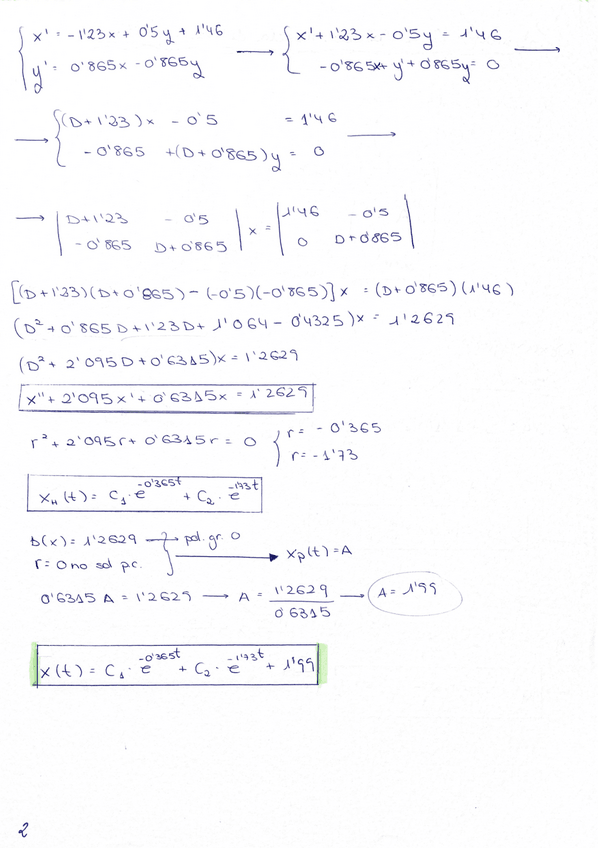 { x' = -1'23x + 0'5y + 1'46 → { x' + 1'23x - 0'5y = 1'46 →
y' = 0'865x - 0'865y -0'865x + y' + 0'865y = 0
→ { (D+1'23)x - 0'5 = 1'46 →
-0'865 + (D+0'865)y = 0
→ | D+1'23 - 0'5 | x = | 1'46 - 0'5 |
| -0'865 D+0'865 | | 0 D+0'865 |
[(D+1'23)(D+0'865) - (-0'5)(-0'865)] x = (D+0'865)(1'46)
(D² + 0'865D + 1'23D + 1'064 - 0'4325)x = 1'2629
(D² + 2'095D + 0'6315)x = 1'2629
x'' + 2'095x' + 0'6315x = 1'2629
r² + 2'095r + 0'6315r = 0 { r = -0'365
r = -1'73
x_H(t) = C₁·e^(-0'365t) + C₂·e^(-1'73t)
b(x) = 1'2629 → pol. gr. 0
r = 0 no sol p.c. } → x_p(t) = A
0'6315 A = 1'2629 → A = 1'2629 / 0'6315 → A = 1'99
x(t) = C₁·e^(-0'365t) + C₂·e^(-1'73t) + 1'99
2